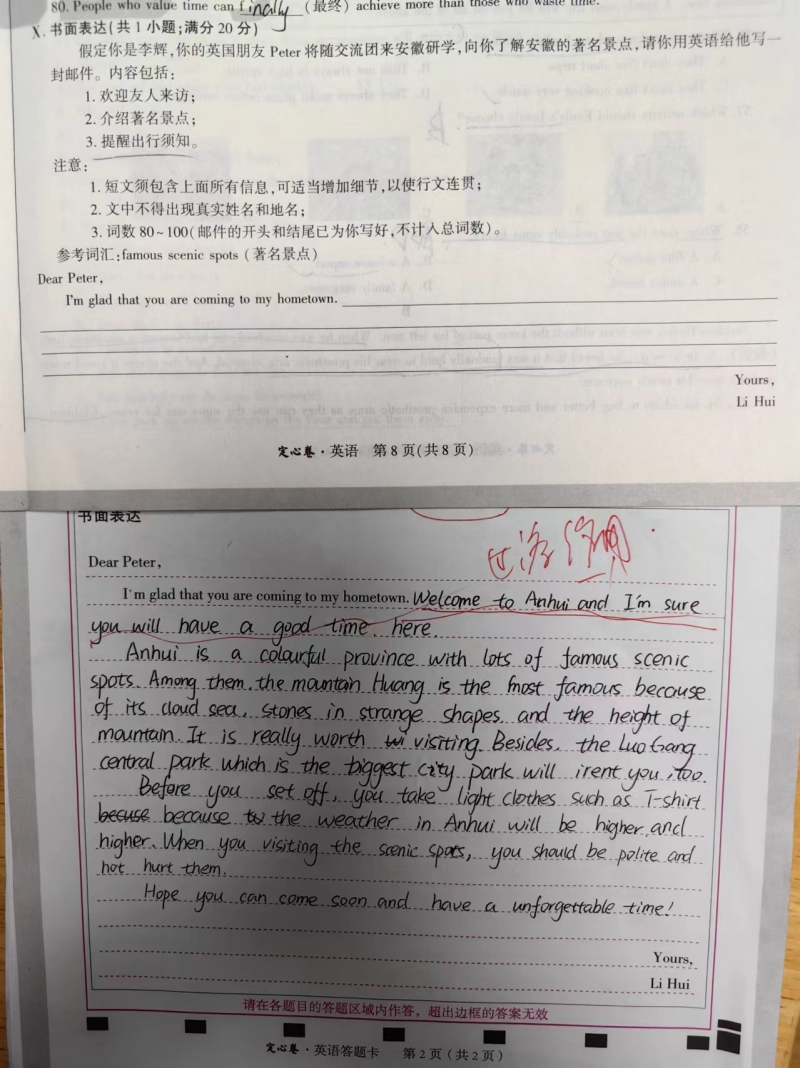 80. People who value time can finally (最终) achieve more than those who waste time.
X. 书面表达(共1小题;满分20分)
假定你是李辉,你的英国朋友 Peter 将随交流团来安徽研学,向你了解安徽的著名景点,请你用英语给他写一
封邮件。内容包括:
1. 欢迎友人来访;
2. 介绍著名景点;
3. 提醒出行须知。
注意:
1. 短文须包含上面所有信息,可适当增加细节,以使行文连贯;
2. 文中不得出现真实姓名和地名;
3. 词数 80~100(邮件的开头和结尾已为你写好,不计入总词数)。
参考词汇:famous scenic spots (著名景点)
Dear Peter,
I'm glad that you are coming to my hometown.
Yours,
Li Hui
定心卷·英语 第8页(共8页)
书面表达
Dear Peter,
I'm glad that you are coming to my hometown. Welcome to Anhui and I'm sure
you will have a good time here.
Anhui is a colourful province with lots of famous scenic
spots. Among them, the mountain Huang is the most famous because
of its cloud sea, stones in strange shapes and the height of
mountain. It is really worth visiting. Besides, the Luo Gang
central park which is the biggest city park will irent you, too.
Before you set off, you take light clothes such as T-shirt
becuse because the weather in Anhui will be higher and
higher. When you visiting the scenic spots, you should be polite and
not hurt them.
Hope you can come soon and have a unforgettable time!
Yours,
Li Hui
请在各题目的答题区域内作答,超出边框的答案无效
定心卷·英语答题卡 第2页(共2页)